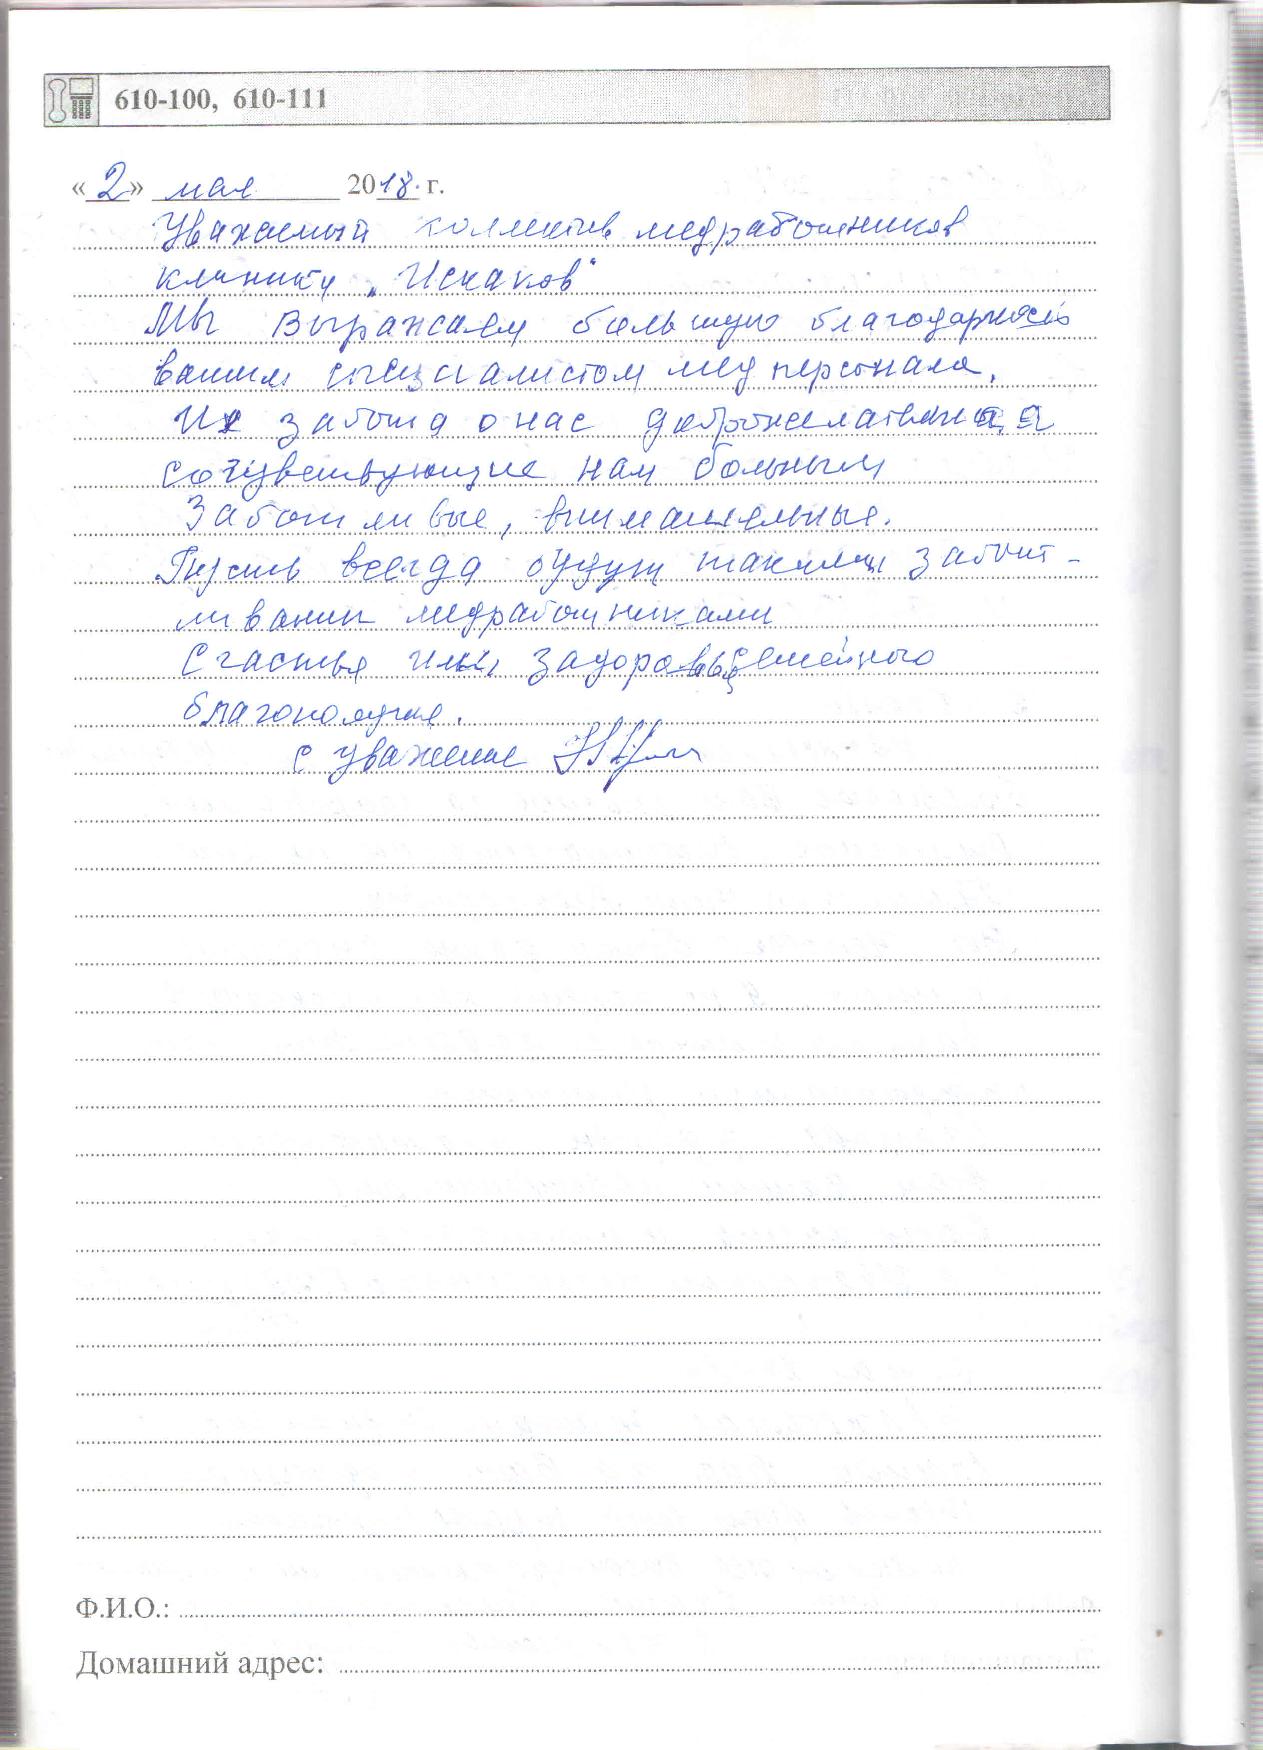 610-100, 610-111
«2» мая 2018 г.
Уважаемый коллектив медработников
клинику „Искаков"
Мы выражаем большую благодарность
вашим специалистом медперсонала,
Их забота о нас доброжелательная
сочувствующие нам больным
Заботливые, внимательные.
Пусть всегда будут такими забот-
ливыми медработниками
Счастья им, здоровья семейного
благополучия.
с уважение
Ф.И.О.:
Домашний адрес: